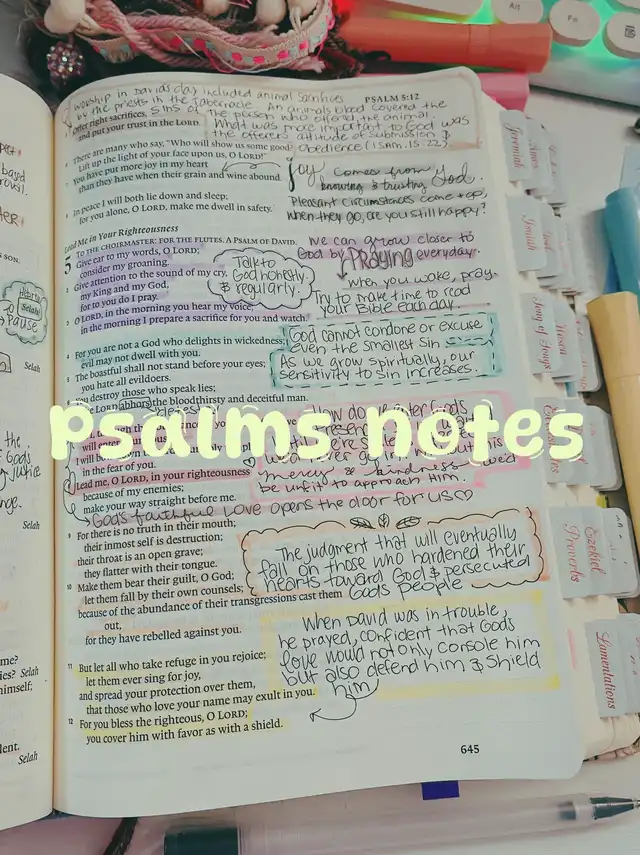 PSALM 5:12
worship in David's day included animal sacrifices
by the priests in the tabernacle. An animals blood covered the
sins of the person who offered the animal.
Offer right sacrifices,
and put your trust in the LORD.
What was more important to God was
the offerers attitude of submission &
obedience (1 SAM. 15:22)
6 There are many who say, "Who will show us some good?
Lift up the light of your face upon us, O LORD!"
7 You have put more joy in my heart
than they have when their grain and wine abound.
Joy comes from
knowing & trusting God.
Pleasant circumstances come & go,
when they go, are you still happy?
8 In peace I will both lie down and sleep;
for you alone, O LORD, make me dwell in safety.
Lead Me in Your Righteousness
TO THE CHOIRMASTER: FOR THE FLUTES. A PSALM OF DAVID.
5 Give ear to my words, O LORD;
consider my groaning.
2 Give attention to the sound of my cry,
my King and my God,
for to you do I pray.
3 O LORD, in the morning you hear my voice;
in the morning I prepare a sacrifice for you and watch.
Talk to
God honestly
& regularly.
We can grow closer to
God by Praying everyday.
When you wake, pray.
Try to make time to read
your Bible each day.
4 For you are not a God who delights in wickedness;
evil may not dwell with you.
5 The boastful shall not stand before your eyes;
you hate all evildoers.
6 You destroy those who speak lies;
the LORD abhors the bloodthirsty and deceitful man.
God cannot condone or excuse
even the smallest sin
As we grow spiritually, our
sensitivity to sin increases.
Psalms notes
How do we enter Gods
in the fear of you.
8 Lead me, O LORD, in your righteousness
because of my enemies;
make your way straight before me.
mercy & kindness
be unfit to approach Him.
God's faithful Love opens the door for us
9 For there is no truth in their mouth;
their inmost self is destruction;
their throat is an open grave;
they flatter with their tongue.
10 Make them bear their guilt, O God;
let them fall by their own counsels;
because of the abundance of their transgressions cast them
out,
for they have rebelled against you.
The judgment that will eventually
fall on those who hardened their
hearts toward God & persecuted
Gods people
11 But let all who take refuge in you rejoice;
let them ever sing for joy,
and spread your protection over them,
that those who love your name may exult in you.
12 For you bless the righteous, O LORD;
you cover him with favor as with a shield.
When David was in trouble,
he prayed, confident that Gods
love would not only console him
but also defend him, & shield
him
645
Selah
Pause
Selah
Selah
Selah
Selah
Jeremiah
Isaiah
Song of Songs
Ezekiel
Proverbs
Lamentations
Alt
Fn